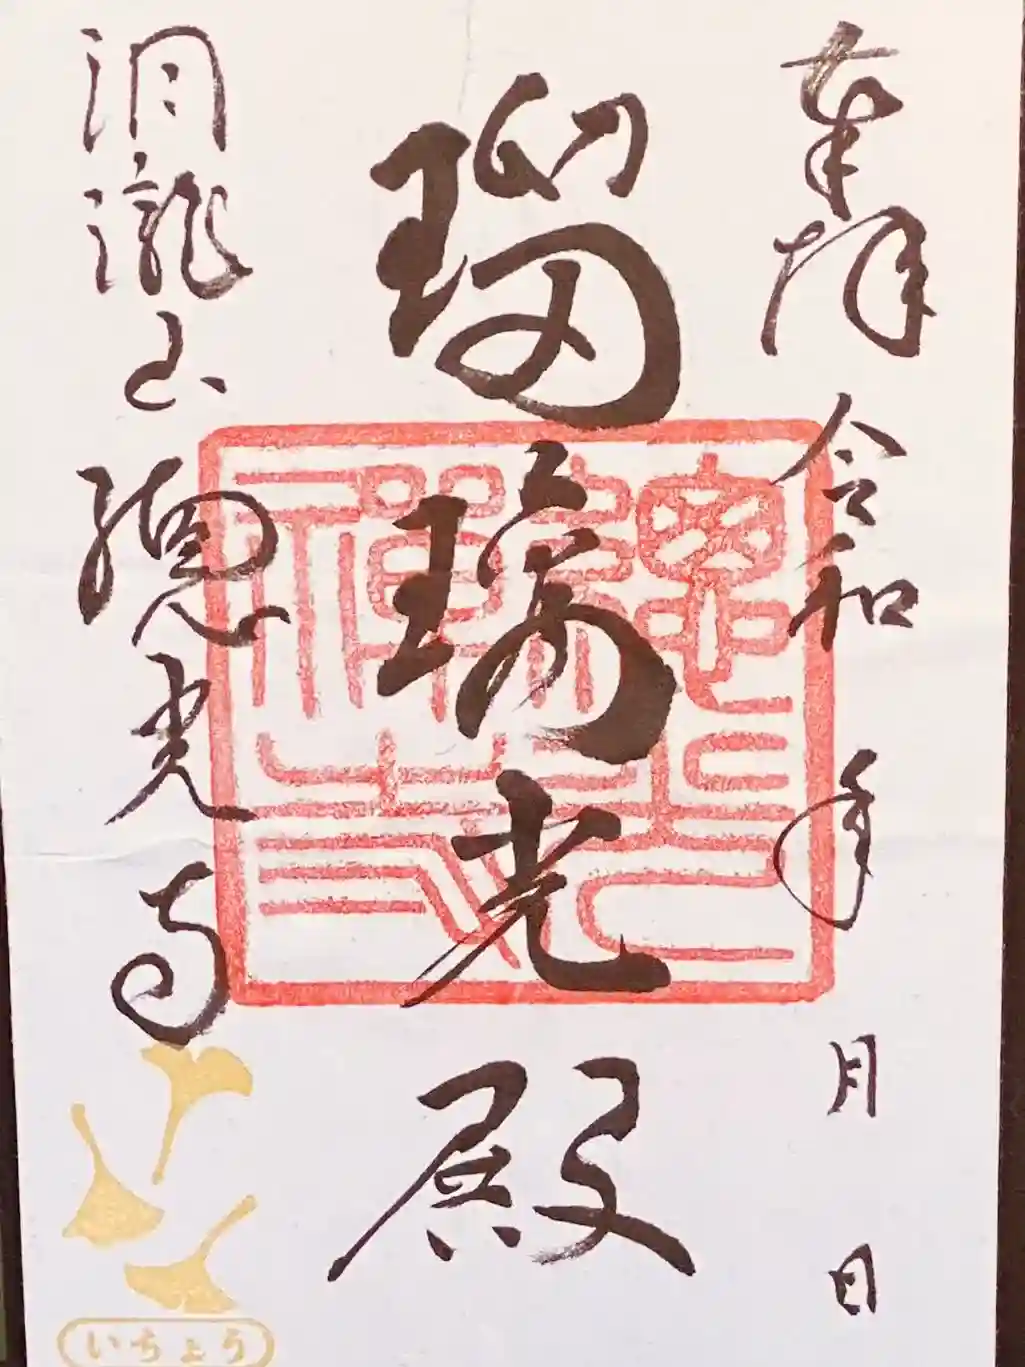 奉拝 令和 年 月 日
瑠璃光殿
洞瀧山 總光寺
いちょう